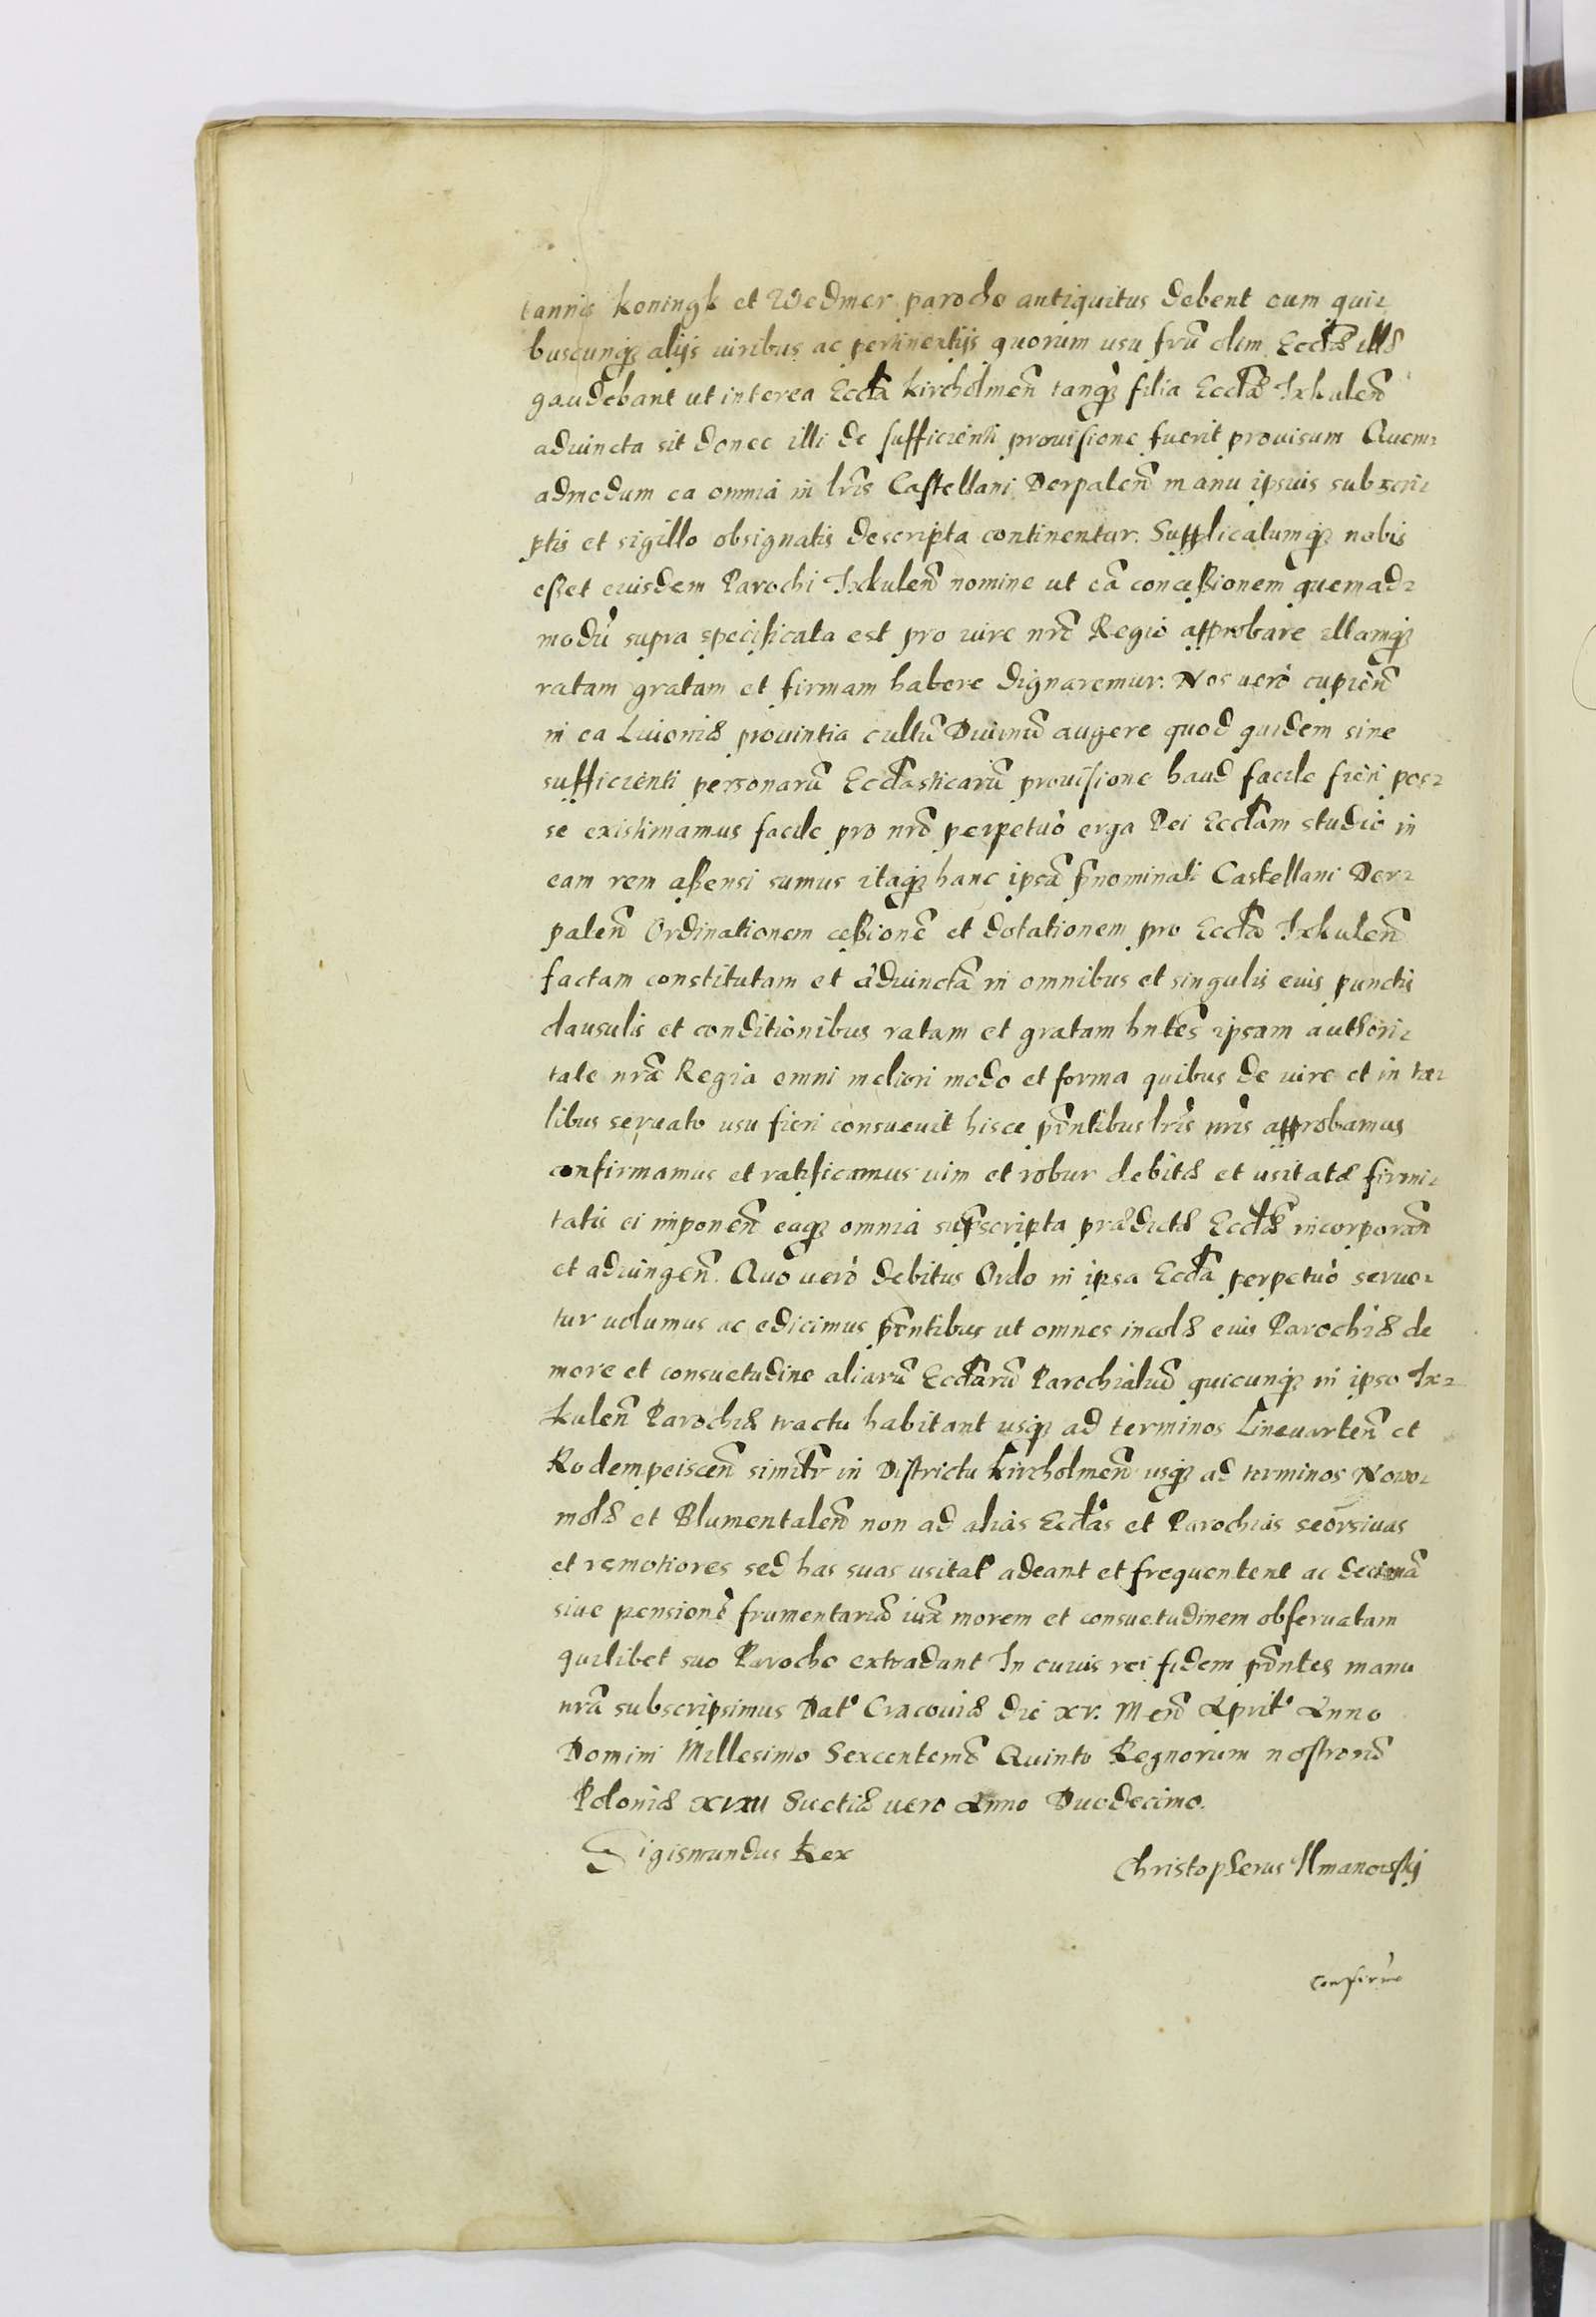 tannis koningk et Wedmer parocho antiquitus debent cum qui-
buscunq₃ alijs iuribus ac pertinentijs quorum usu frũ olim Eccłæ illæ
gaudebant ut interea Eccła kircholmeñ tanq₃ filia Eccłæ Ixkuleñ
adiuncta sit donec illi de sufficienti prouisione fuerit prouisum Quem-
admodum ea omnia in lrĩs Castellani Derpateñ manu ipsius subscri-
ptis et sigillo obsignatis descripta continentur. Supplicatumq₃ nobis
eßet eiusdem Parochi Ixkuleñ nomine ut eã conceßionem quemad-
modũ supra specificata est pro iure nrõ Regio approbare illamq₃
ratam gratam et firmam habere dignaremur. Nos uerò cupieñ
in ea Liuoniæ prouintia cultũ Diuinũ augere quod quidem sine
sufficienti personarũ Ecclãsticarũ prouisione haud facile fieri pos-
se existimamus facile pro nrõ perpetuò erga Dei Eccłam studio in
eam rem aßensi sumus itaq₃ hanc ipsã p̃nominati Castellani Der-
pateñ Ordinationem ceßionẽ et dotationem pro Eccła Ixkuleñ
factam constitutam et adiunctã in omnibus et singulis euis punctis
clausulis et conditionibus ratam et gratam hntẽs ipsam authori-
tate nrã Regia omni meliori modo et forma quibus de iure et in ta-
libus seruato usu fieri consueuit hisce pñtibus lrĩs nrĩs approbamus
confirmamus et ratificamus uim et robur debitæ et usitatæ firmi-
tatis ei imponeñ eaq₃ omnia sup̃scripta prædictæ Eccłæ incorporañ
et adiungeñ. Quò uerò debitus Ordo in ipsa Eccła perpetuò serue-
tur uolumus ac edicimus pñtibus ut omnes incolæ euis Parochiæ de
more et consuetudine aliarũ Eccłarũ Parochialiũ quicunq₃ in ipso Ix-
kuleñ Parochiæ tractu habitant usq₃ ad terminos Lineuarteñ et
Rodempeisceñ similtr in Districtu kircholmeñ usq₃ ad terminos Nowo-
molæ et Blumentaleñ non ad alias Eccłas et Parochias seorsiuas
et remotiores sed has suas usitat adeant et frequentent ac decimã
siue pensionẽ frumentariã iux̃ morem et consuetudinem obseruatam
quilibet suo Parocho extradant In cuius rei fidem pñtes manu
nrã subscripsimus Dat Cracouiæ die xv. Meñ April Anno
Domini Millesimo Sexcentemõ Quinto Regnorum nostrorũ
Poloniæ XVIII Suetiæ uero Anno Duodecimo.
Sigismundus Rex
Christopherus Ilmanowskj